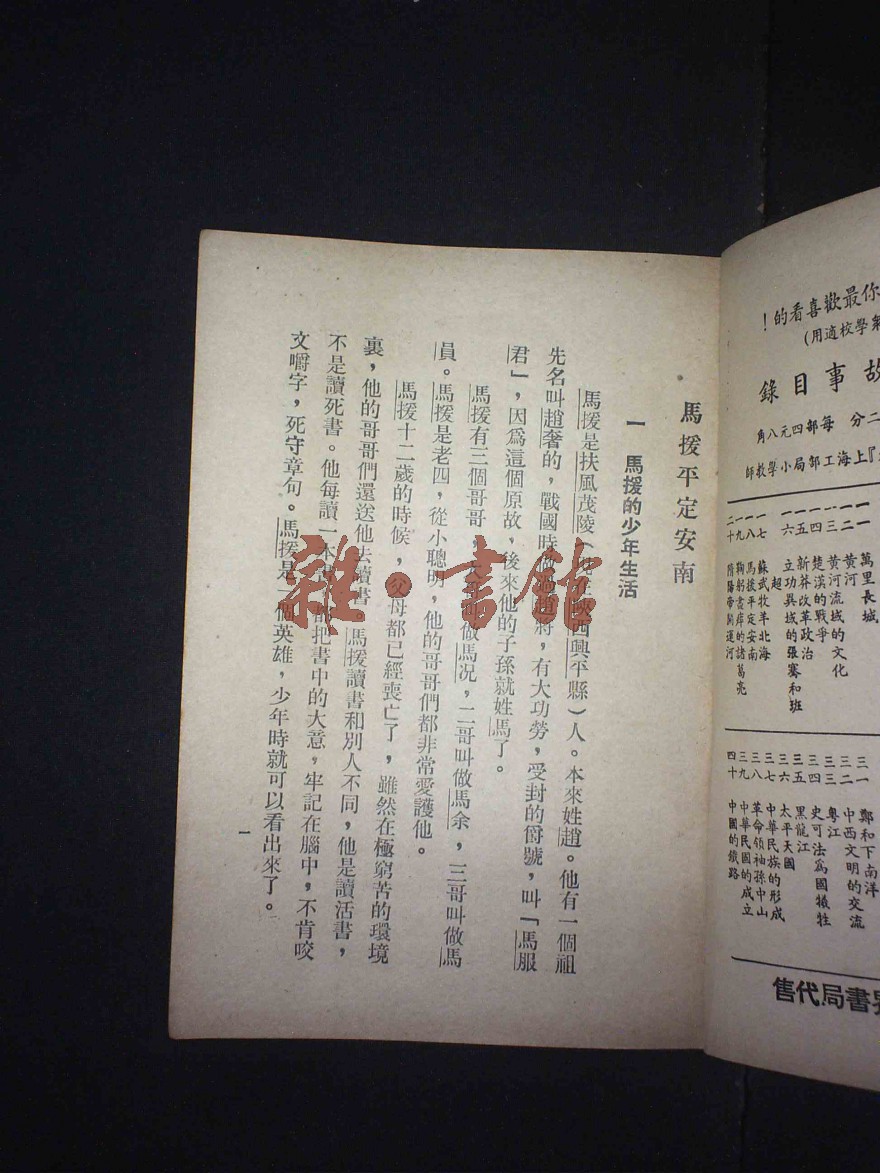 你最歡喜看的！
學校適用)
故事目錄
二分 每部四元八角
』上海工部局小學教師
一一 萬里長城
一二 黃河
一三 黃河流域的文化
一四 楚漢的戰爭
一五 新莽改革政治
一六 立功異域的張騫和班超
一七 蘇武牧羊北海
一八 馬援平定安南
一九 鞠躬盡瘁的諸葛亮
二十 隋陽帝開運河
三一 鄭和下南洋
三二 中西文明的交流
三三 粵江
三四 史可法爲國犧牲
三五 黑龍江
三六 太平天國
三七 中華民族的形成
三八 革命領袖孫中山
三九 中華民國的成立
四十 中國的鐵路
書局代售
馬援平定安南
一 馬援的少年生活
馬援是扶風茂陵（在陝西興平縣）人。本來姓趙。他有一個祖
先名叫趙奢的，戰國時做過趙將，有大功勞，受封的爵號，叫「馬服
君」，因爲這個原故，後來他的子孫就姓馬了。
馬援有三個哥哥，做馬况，二哥叫做馬余，三哥叫做馬
員。馬援是老四，從小聰明，他的哥哥們都非常愛護他。
馬援十二歲的時候，父母都已經喪亡了，雖然在極窮苦的環境
裏，他的哥哥們還送他去讀書，馬援讀書和別人不同，他是讀活書，
不是讀死書。他每讀一本書，都把書中的大意，牢記在腦中，不肯咬
文嚼字，死守章句。馬援是一個英雄，少年時就可以看出來了。
一
雜·書館